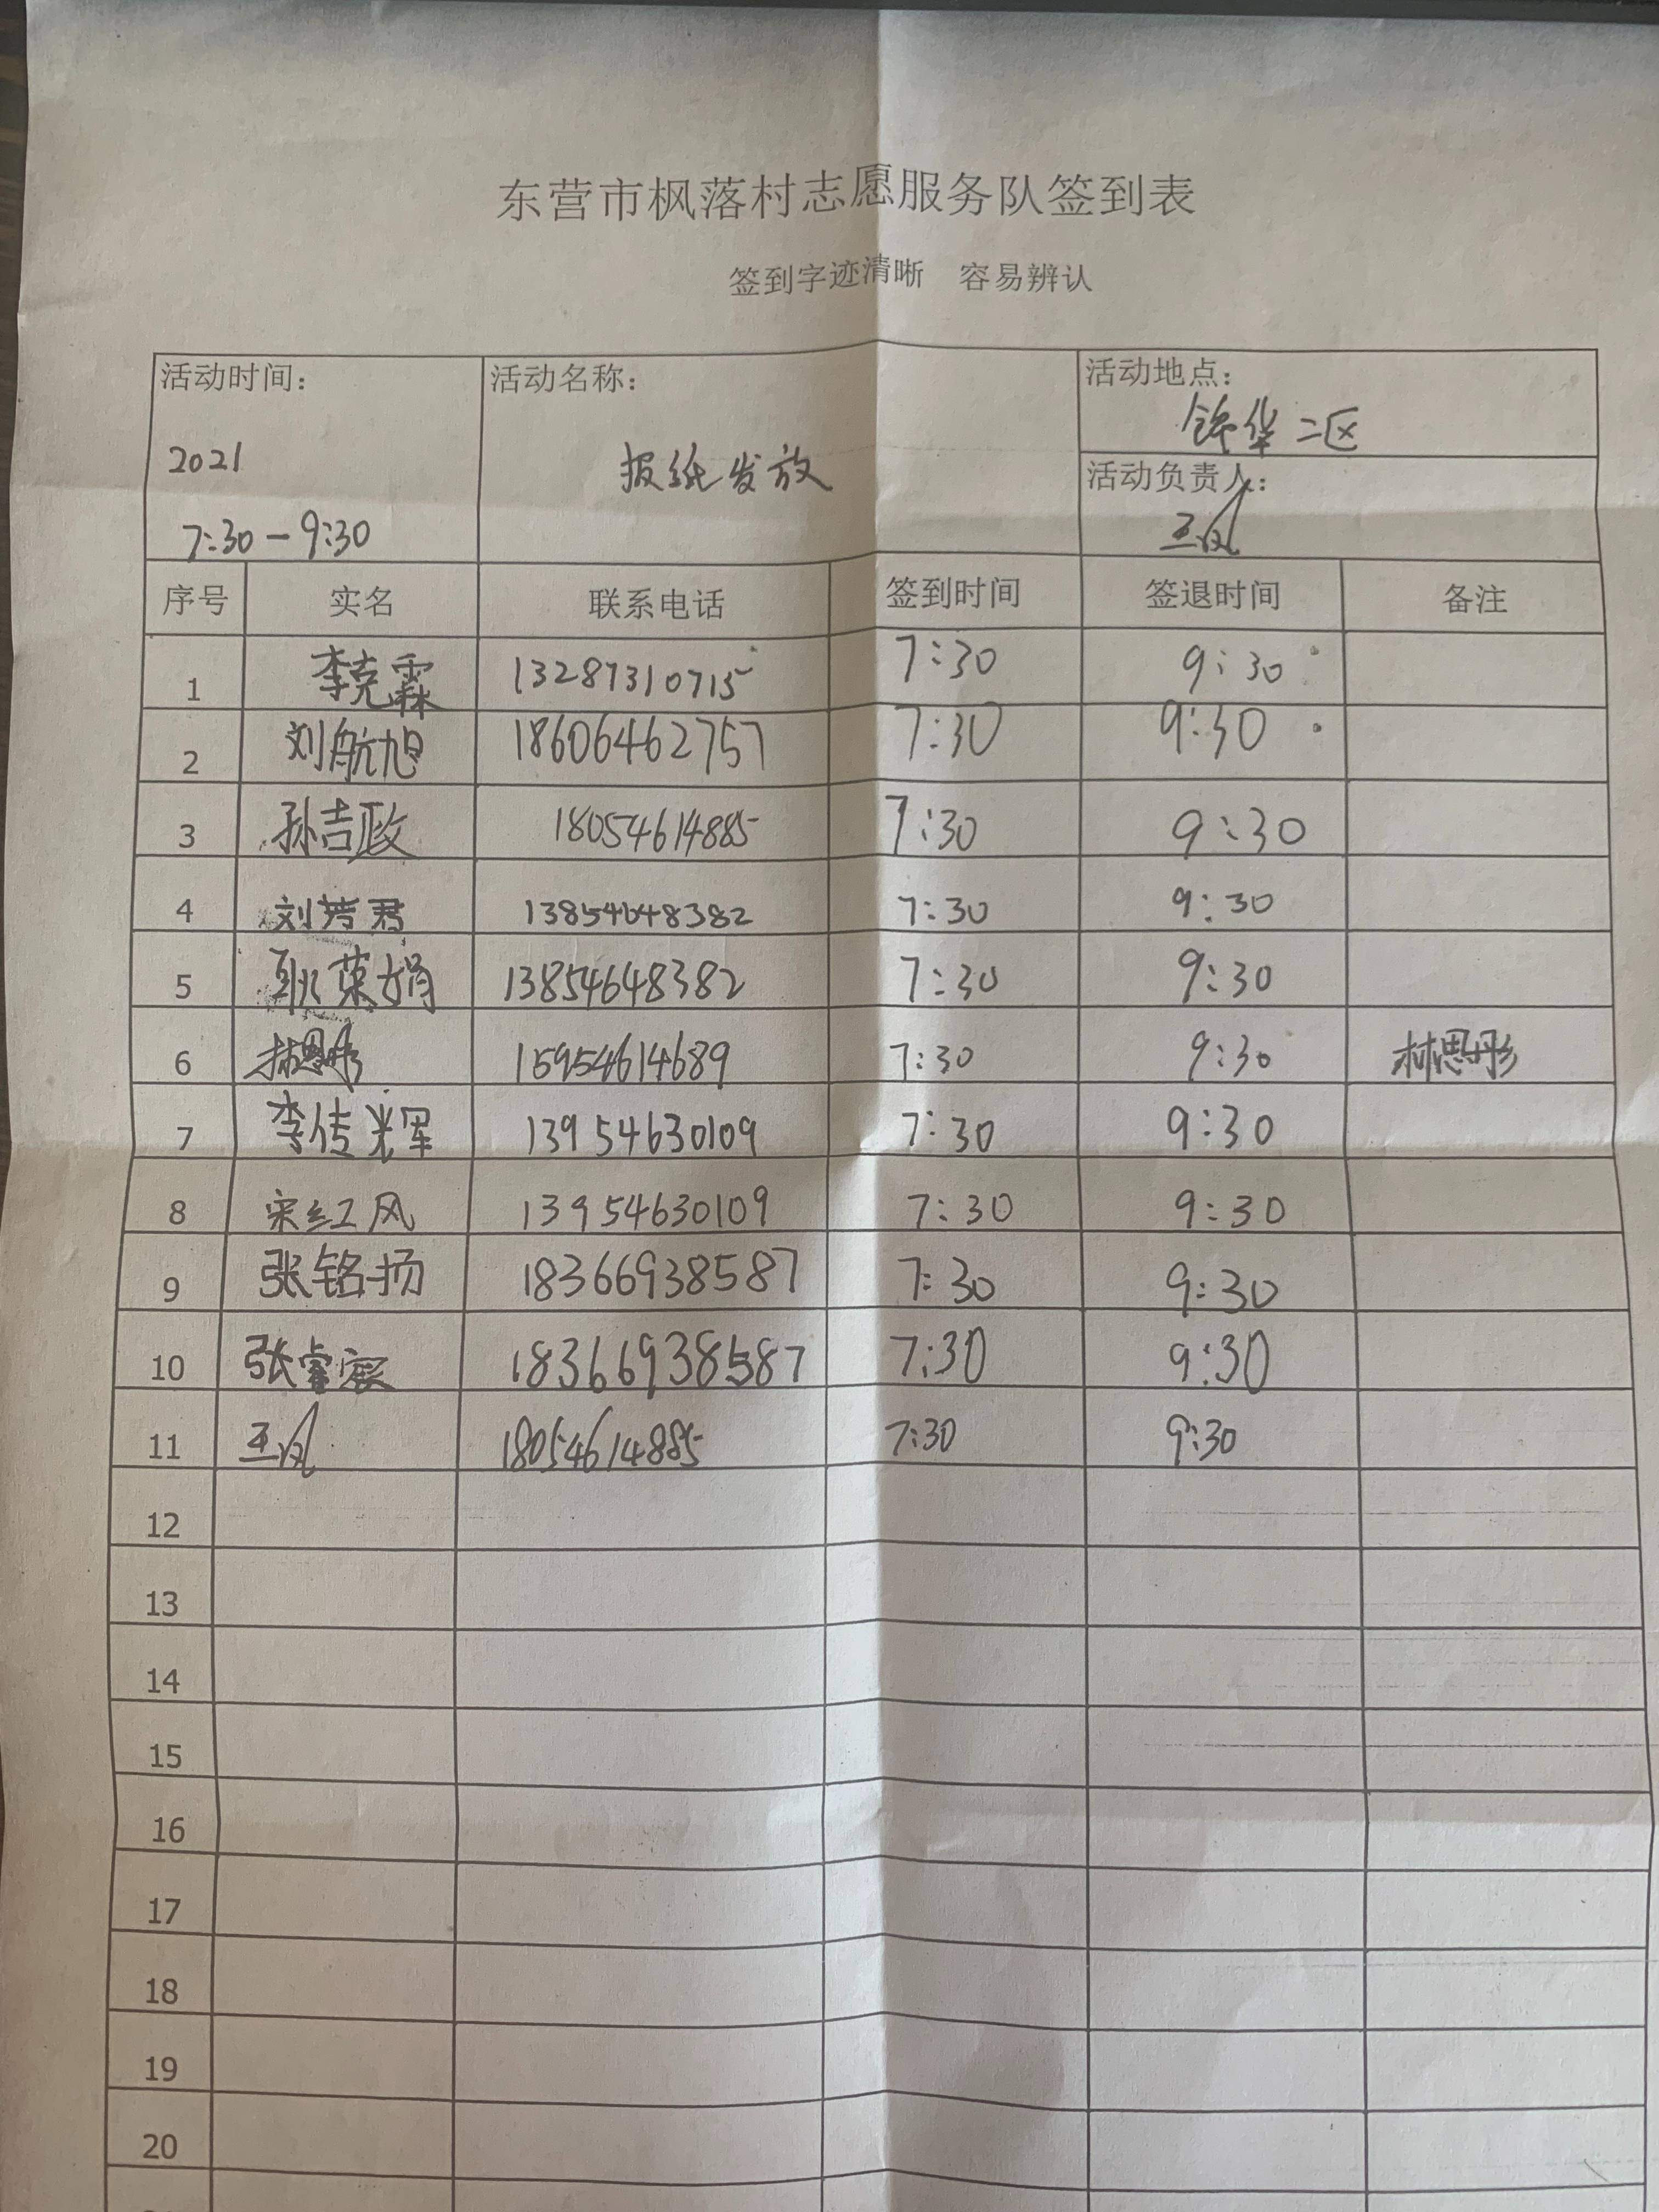 东营市枫落村志愿服务队签到表
签到字迹清晰 容易辨认
活动时间: 活动名称: 活动地点:
锦华二区
2021 报纸发放 活动负责人:
7:30-9:30 王凤
序号 实名 联系电话 签到时间 签退时间 备注
1 李克霖 13287310715 7:30 9:30
2 刘航旭 18606462757 7:30 9:30
3 孙吉政 18054614885 7:30 9:30
4 刘芳君 13854648382 7:30 9:30
5 耿荣娟 13854648382 7:30 9:30
6 林思彤 15954614689 7:30 9:30 林思彤
7 李传辉 13954630109 7:30 9:30
8 宋红风 13954630109 7:30 9:30
9 张铭扬 18366938587 7:30 9:30
10 张睿宸 18366938587 7:30 9:30
11 王凤 18054614885 7:30 9:30
12
13
14
15
16
17
18
19
20